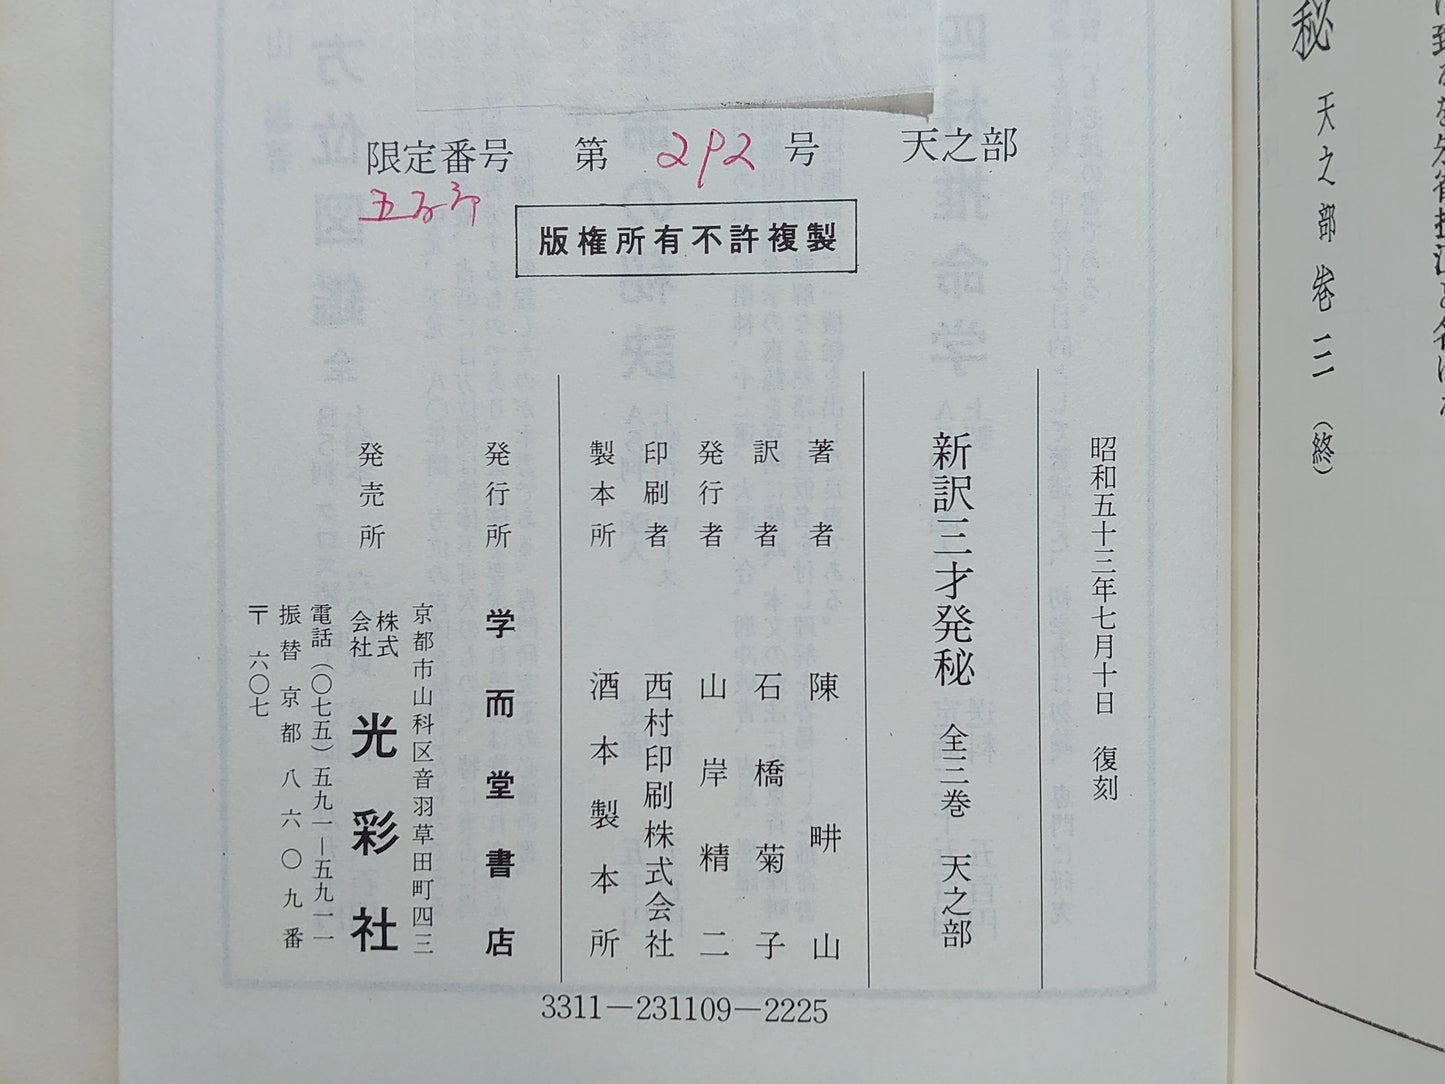 秘 天之部 巻二 (終)
限定番号 第 292 号 天之部
版権所有不許複製
昭和五十三年七月十日 復刻
新訳三才発秘 全三巻 天之部
著者 陳畊山
訳者 石橋菊子
発行者 山岸精二
印刷者 西村印刷株式会社
製本所 酒本製本所
発行所 学而堂書店
京都市山科区音羽草田町四三
発売所 株式会社 光彩社
電話(〇七五)五九一―五九一一
振替 京都 八六〇九番
〒 六〇七
3311―231109―2225